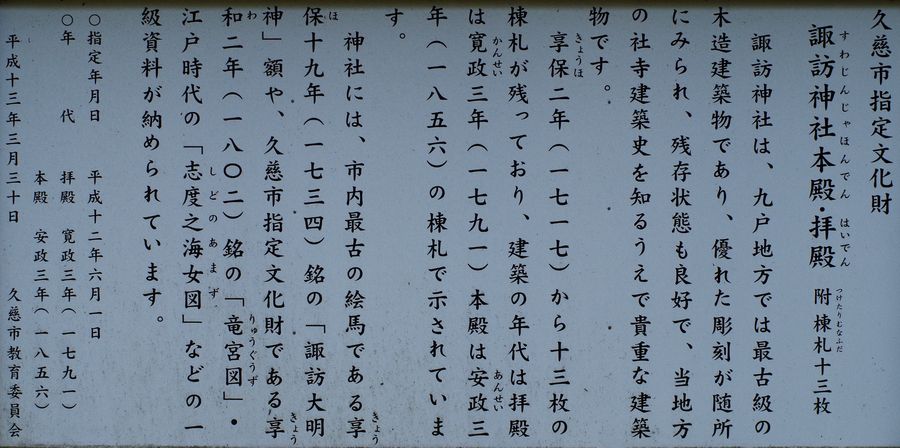 久慈市指定文化財
諏訪神社本殿・拝殿 附棟札十三枚
すわじんじゃほんでん はいでん つけたりむなふだ
諏訪神社は、九戸地方では最古級の
木造建築物であり、優れた彫刻が随所
にみられ、残存状態も良好で、当地方
の社寺建築史を知るうえで貴重な建築
物です。
享保二年(一七一七)から十三枚の
きょうほ
棟札が残っており、建築の年代は拝殿
は寛政三年(一七九一)本殿は安政三
かんせい あんせい
年(一八五六)の棟札で示されていま
す。
神社には、市内最古の絵馬である享
きょう
保十九年(一七三四)銘の「諏訪大明
ほ
神」額や、久慈市指定文化財である享
きょう
和二年(一八〇二)銘の「竜宮図」・
わ りゅうぐうず
江戸時代の「志度之海女図」などの一
しどのあまず
級資料が納められています。
〇指定年月日 平成十二年六月一日
〇年 代 拝殿 寛政三年(一七九一)
本殿 安政三年(一八五六)
平成十三年三月三十日 久慈市教育委員会